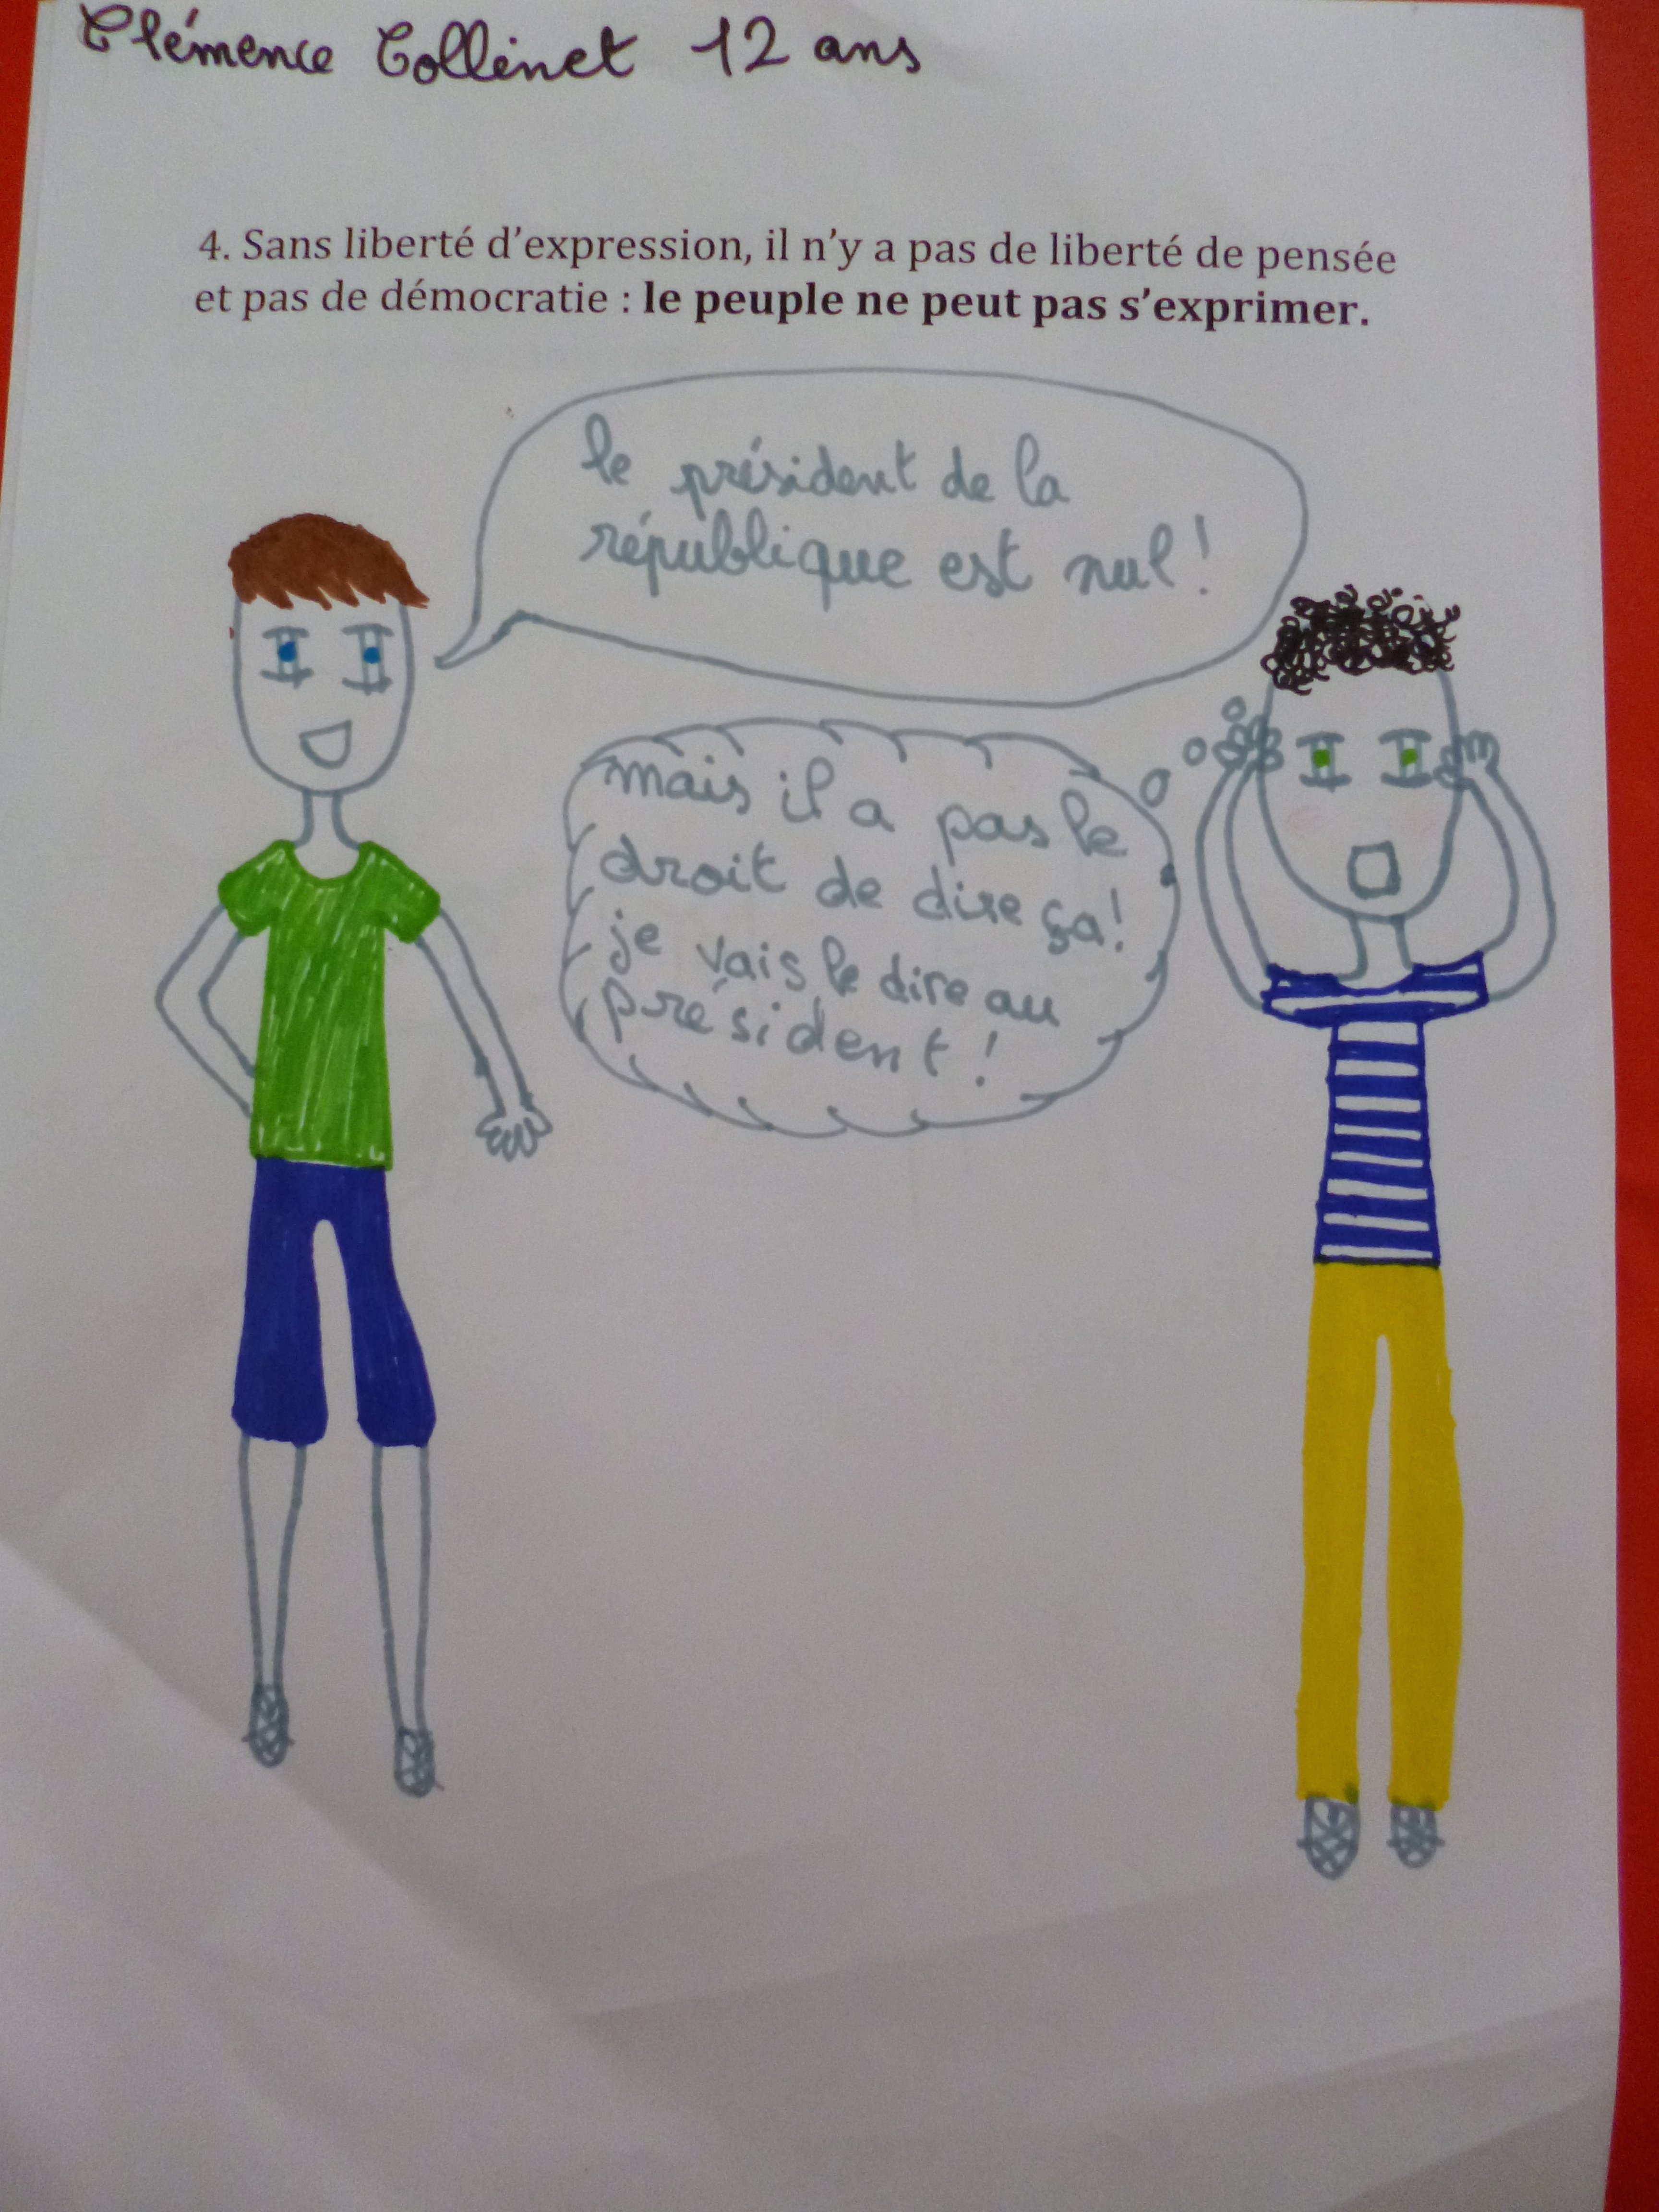 Clémence Collinet 12 ans
4. Sans liberté d'expression, il n'y a pas de liberté de pensée
et pas de démocratie : le peuple ne peut pas s'exprimer.
le président de la
république est nul !
mais il a pas le
droit de dire ça !
je vais le dire au
président !